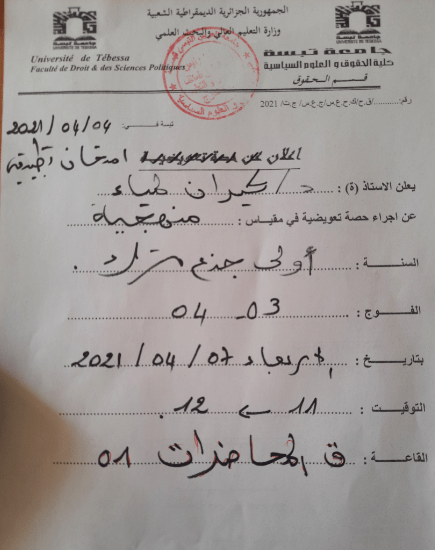 الجمهورية الجزائرية الديمقراطية الشعبية
وزارة التعليم العالي والبحث العلمي
Université de Tébessa
Faculté de Droit & des Sciences Politiques
جامعة تبسة
كلية الحقوق و العلوم السياسية
قسم الحقوق
رقم:........../ق.ح/ك.ح.ع.س/ج.ع.س/ج.ت/ 2021
تبسة في: 2021/04/04
إعلان عن حصة تعويضية امتحان تطبيقي
يعلن الاستاذ (ة) : د/ كيران لمياء
عن اجراء حصة تعويضية في مقياس : منهجية
السنة : أولى جذع مشترك .
الفوج : 03 - 04
بتاريخ : الاربعاء 07 / 04 / 2021
التوقيت : 11 ← 12 .
القاعة : ق المحاضرات 01